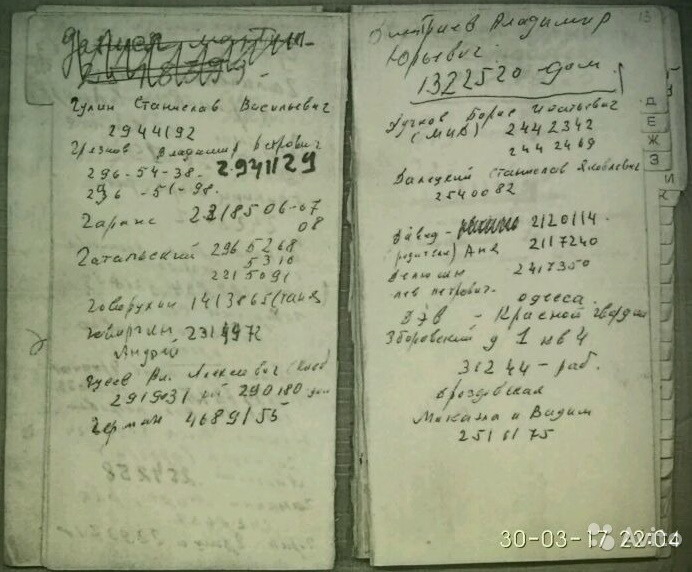 Гулин Станислав Васильевич
2944192
Грезнов Владимир Петрович
296-54-38. 2941129
296-51-98.
Гаранс - 2318506-07
08
Гатальский 2965268
5310
2215091
Говорухин 1413865 (Таня)
Говоргин
Андрей
Гусев Ал. Алексеевич
2919031 290180 дом
Герман 4689155
Дмитриев Владимир
Юрьевич
1322520 дом
Дучков Борис Игнатьевич
(МИД) 2442342
2442469
Далецкий Станислав Яковлевич
2540082
Давид - 2120114.
(родители) Аня 2117240
2417350
Лев Петрович.
Одеса.
ДЭВ - Красной гвардии
Зборовский д 1 кв 4
36244 - раб.
Дроздовская
Микаэла и Вадим
2516175
13
Д
Е
Ж
З
И
К
30-03-17 22:04
Avito